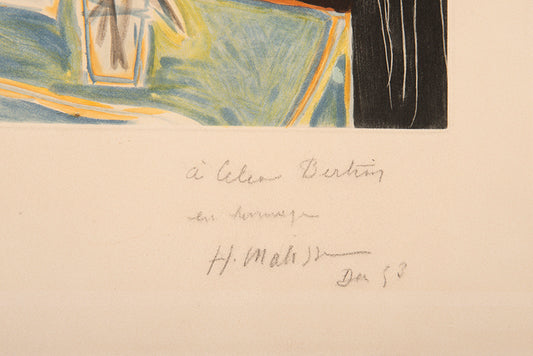 à Célia Bertin
en hommage
H. Matisse
Dec 53